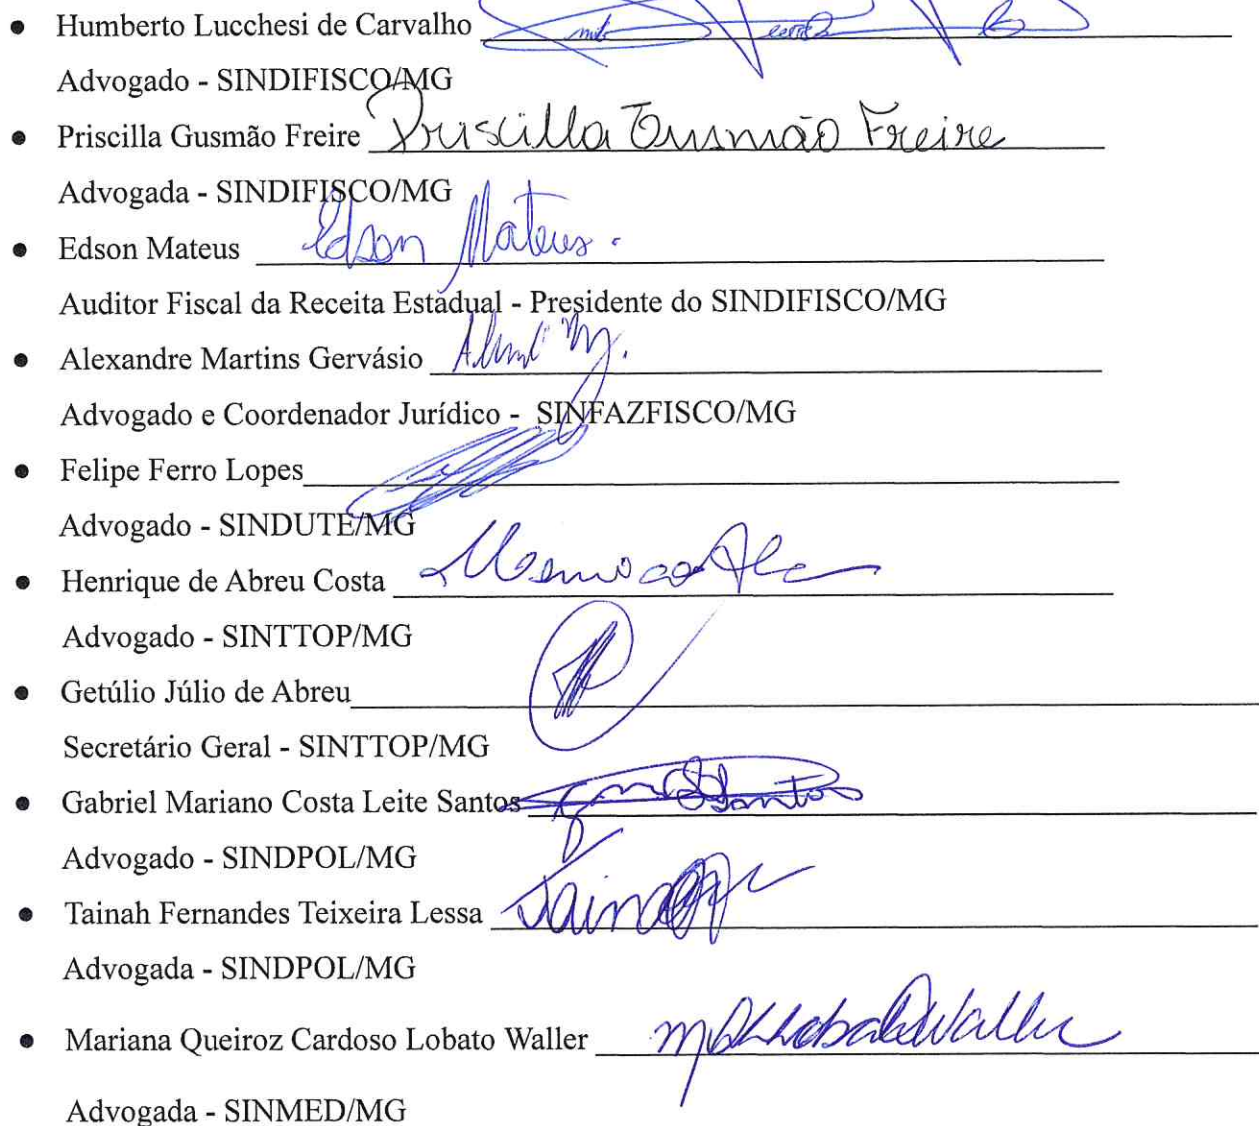 • Humberto Lucchesi de Carvalho
Advogado - SINDIFISCO/MG
• Priscilla Gusmão Freire Priscilla Gusmão Freire
Advogada - SINDIFISCO/MG
• Edson Mateus Edson Mateus.
Auditor Fiscal da Receita Estadual - Presidente do SINDIFISCO/MG
• Alexandre Martins Gervásio
Advogado e Coordenador Jurídico - SINFAZFISCO/MG
• Felipe Ferro Lopes
Advogado - SINDUTE/MG
• Henrique de Abreu Costa
Advogado - SINTTOP/MG
• Getúlio Júlio de Abreu
Secretário Geral - SINTTOP/MG
• Gabriel Mariano Costa Leite Santos Santos
Advogado - SINDPOL/MG
• Tainah Fernandes Teixeira Lessa
Advogada - SINDPOL/MG
• Mariana Queiroz Cardoso Lobato Waller
Advogada - SINMED/MG